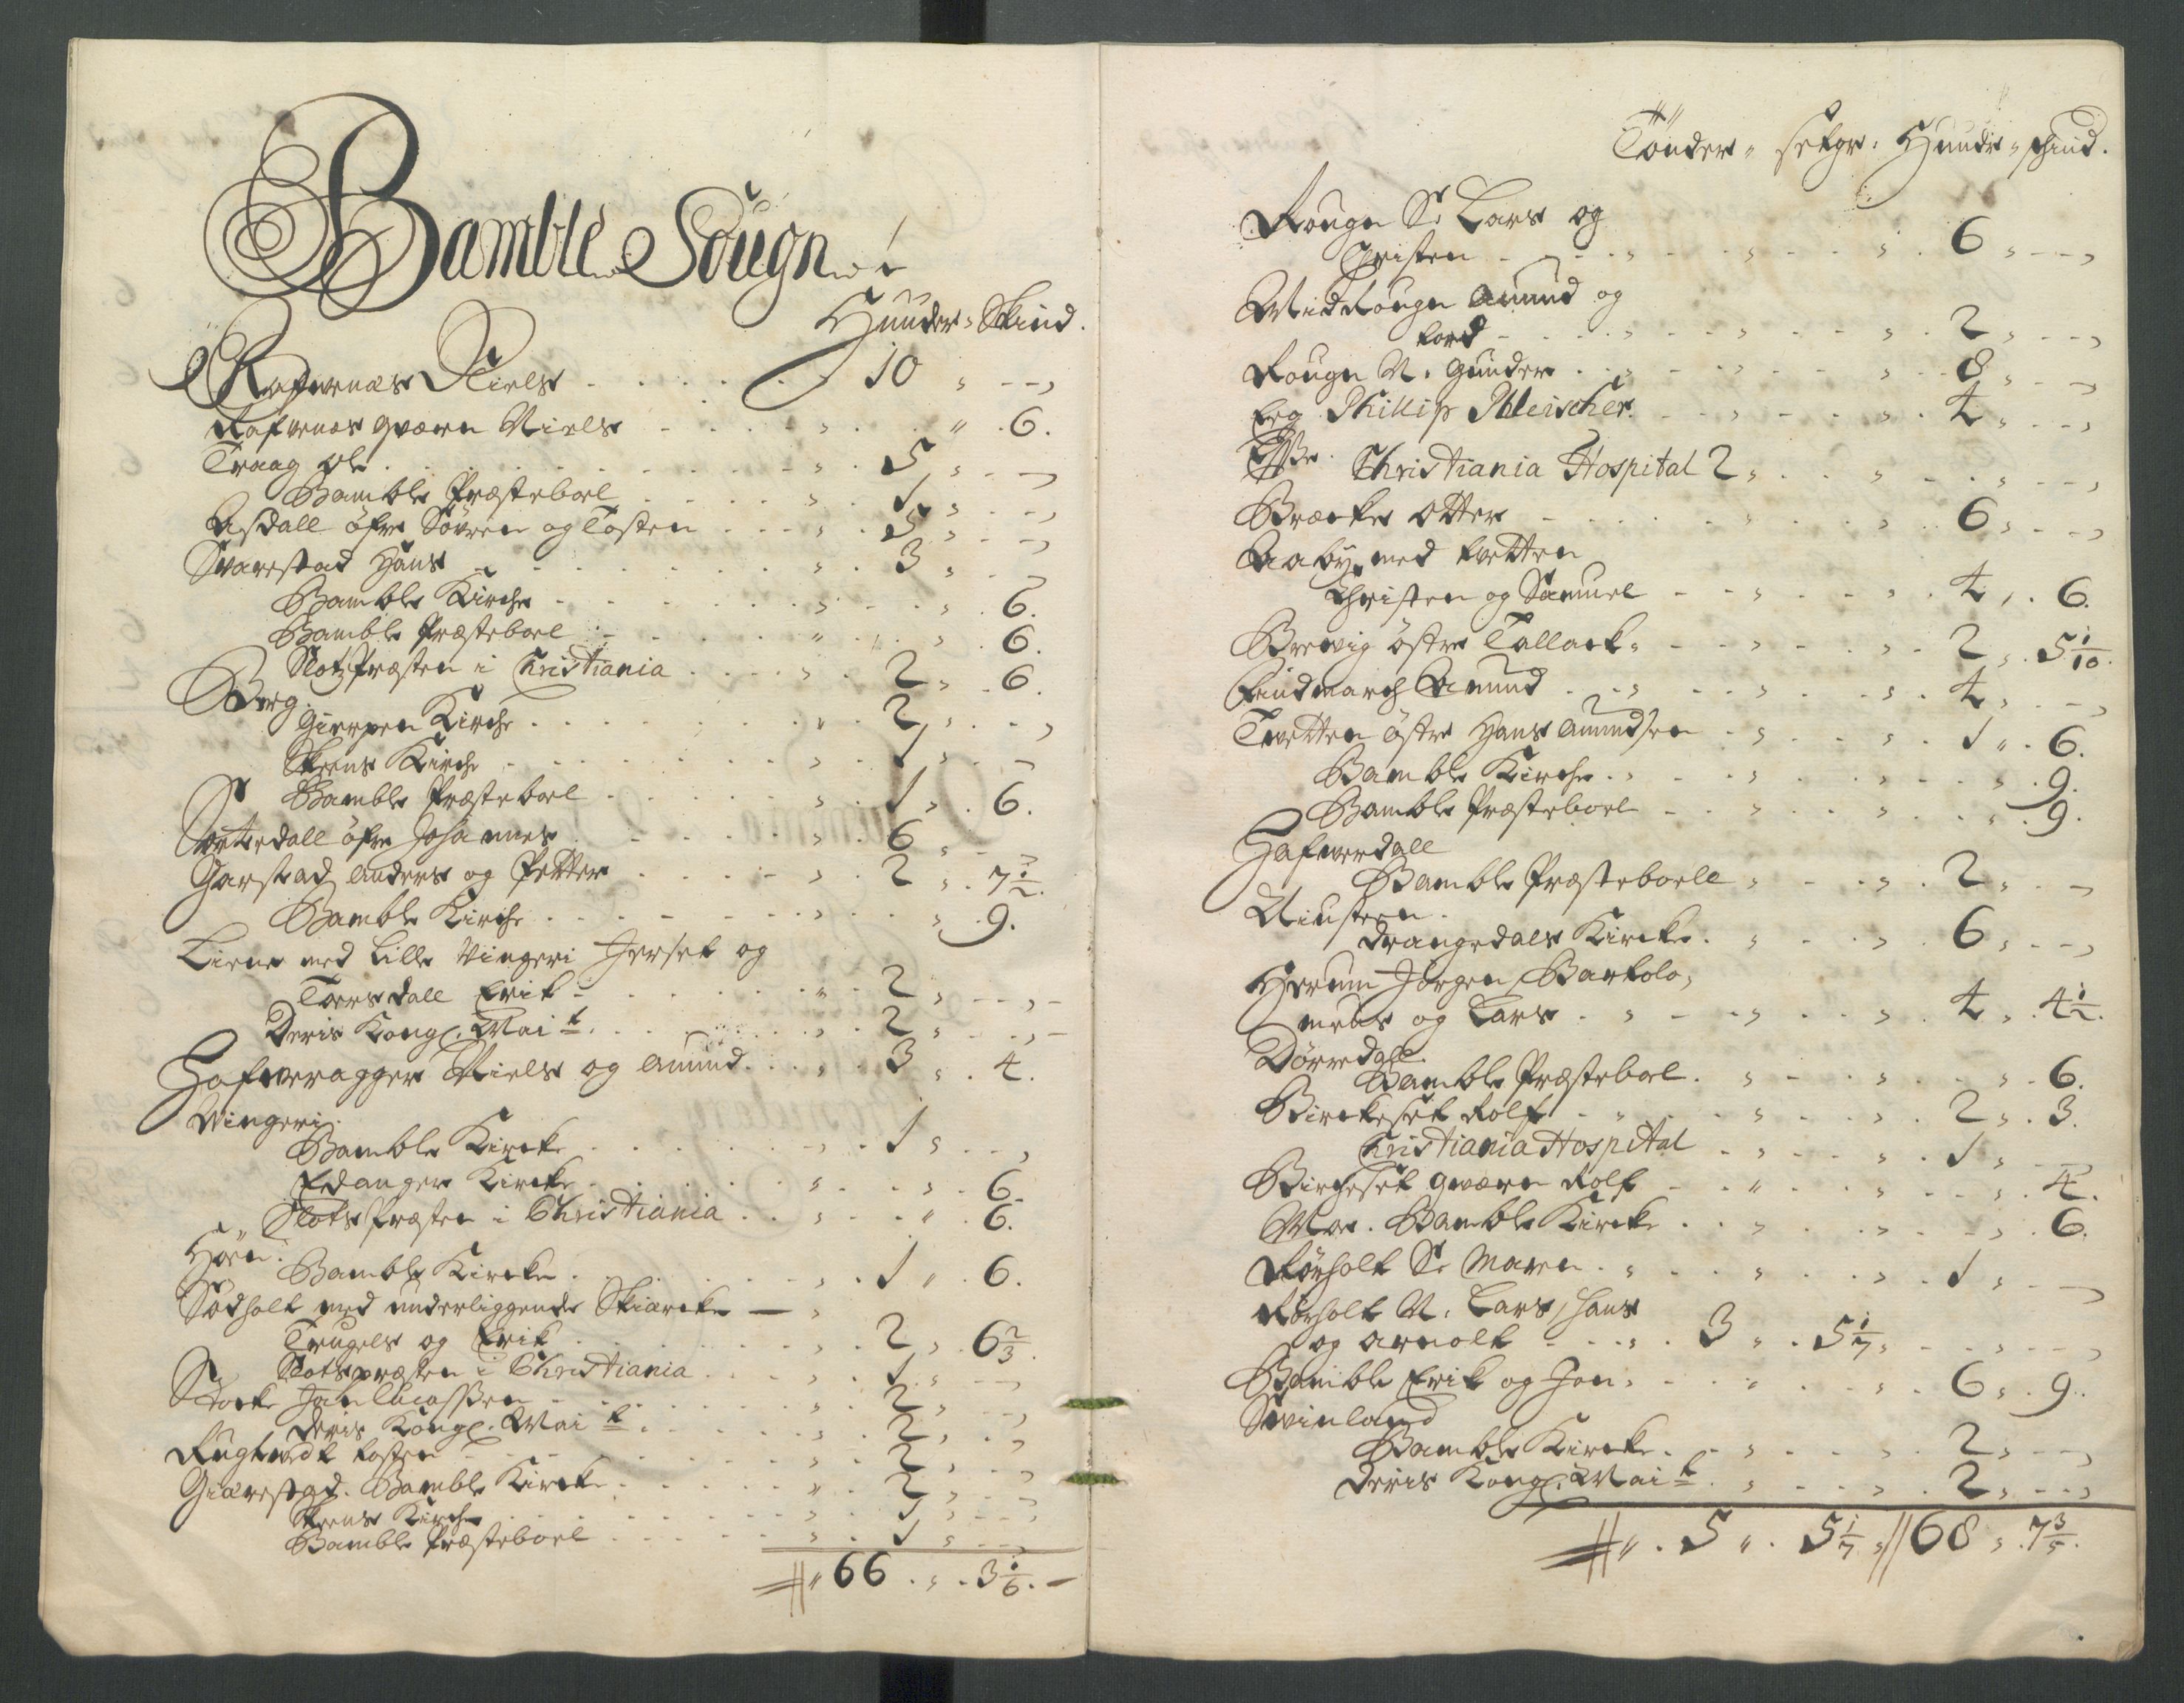 Bamble Sougn
Huuder, Skind.
Rafvenæs Niels 10
Rafvenæs qværn Niels 6.
Traag Ole 5
Bamble Præsteboel 1
Asdall öfre Sövren og Tosten 5
Svarestad Hans 3
Bamble Kirche 6.
Bamble Præsteboel 6.
Slotz Præsten i Christiania 2 6.
Berg.
Gierpen Kirche 2
Skeens Kirche 1
Bamble Præsteboel 1 6.
öfre Johannes 6
Garstad Anders og Petter 2 7½.
Bamble Kirche 9.
Liene med Lille Vingeri Jerset og
Torsdall Erik 2
Deris Kongl. Mait. 2
Hafveragger Niels og Amund 3 4.
Vingeri.
Bamble Kircke 1
Edanger Kircke 6.
Slots Præsten i Christiania 6.
Hoen.
Bamble Kircke 1 6.
Sodholt med underliggende Skiercke
Trugels og Erik 2 6⅔.
Slotspræsten i Christiania 1
Stocke Jan Lucassen 2
Deris Kongl. Mait. 2
Rugtvedt Tosten 2
Giærestad. Bamble Kircke 2
Skeens Kirche 1
Bamble Præsteboel 1
66 3 1/6.
Tönder, setgr, Hunder, skind.
Rougn S. Lars og
Christen 6
Midrougn Amund og
Tord 2
Rougn N. Gunder 8
Eeg Phillip Meischer 4
Christiania Hospital 2
Bræcke Otter 6
Aaby med tvetten
Christen og Samuel 4 6.
Brevig östre Tallack 2 5 1/10.
Findmarch Amund 4
Tvetten östre Hans Amundsen 1 6.
Bamble Kirche 9.
Bamble Præsteboel 9.
Hafverdall
Bamble Præsteboell 2
Niusteen.
Drangedals Kircke. 6
Herum Jörgen, Bartolo,
meus og Lars 4 4½.
Dörredall.
Bamble Præsteboel. 6.
Birckeset Rolf 2 3.
Christiania Hospital 1
Bircheset qværn Rolf 4.
Moe. Bamble Kircke 6.
Rörholt S. Maren 1
Rörholt N. Lars, Hans
og Arnolt 3 5 1/7
Bamble Erik og Jon 6 9.
Svinland
Bamble Kircke. 2
Deris Kongl. Mait. 2
5 5 1/7 68 7 3/5.